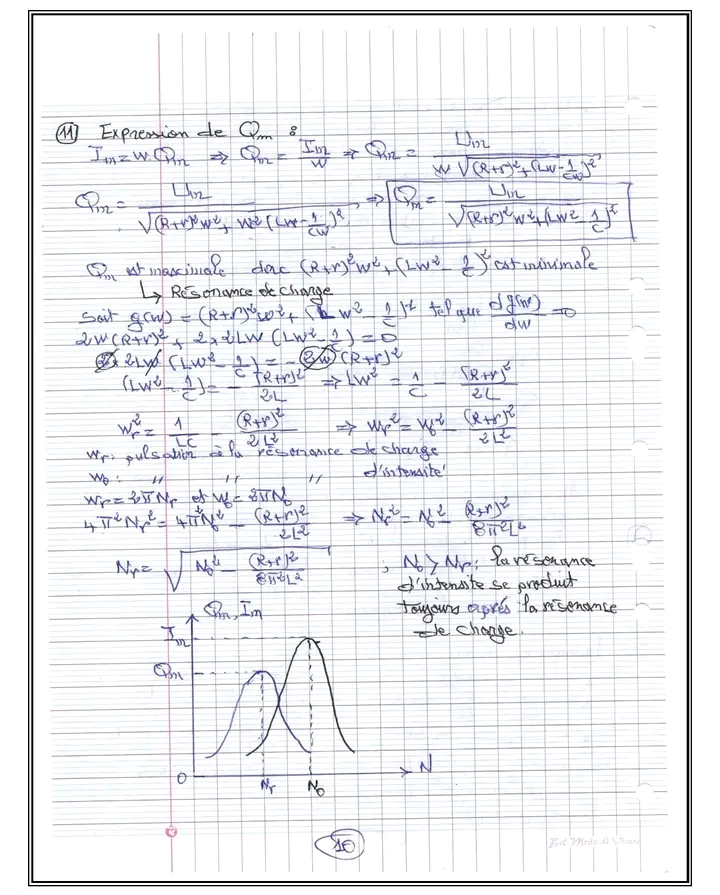 11) Expression de Qm :
Im = w.Qm ⇒ Qm = Im/w ⇒ Qm = Um / (w √((R+r)² + (Lw - 1/Cw)²))
Qm = Um / √((R+r)²w² + w²(Lw - 1/Cw)²) ⇒ Qm = Um / √((R+r)²w² + (Lw² - 1/C)²)
Qm est maximale donc (R+r)²w² + (Lw² - 1/C)² est minimale
↳ Résonance de charge
Soit g(w) = (R+r)²w² + (Lw² - 1/C)² tel que dg(w)/dw = 0
2w(R+r)² + 2×2Lw (Lw² - 1/C) = 0
2×2Lw (Lw² - 1/C) = -2w (R+r)²
(Lw² - 1/C) = - (R+r)²/2L ⇒ Lw² = 1/C - (R+r)²/2L
wr² = 1/LC - (R+r)²/2L² ⇒ wr² = w0² - (R+r)²/2L²
wr : pulsation à la résonance de charge
w0 : " " " d'intensité
wr = 2πNr et w0 = 2πN0
4π²Nr² = 4π²N0² - (R+r)²/2L² ⇒ Nr² = N0² - (R+r)²/8π²L²
Nr = √(N0² - (R+r)²/8π²L²) , N0 > Nr : la résonance
d'intensite se produit
toujours aprés la résonance
de charge.
Qm, Im
Im
Qm
0
Nr
N0
N
10